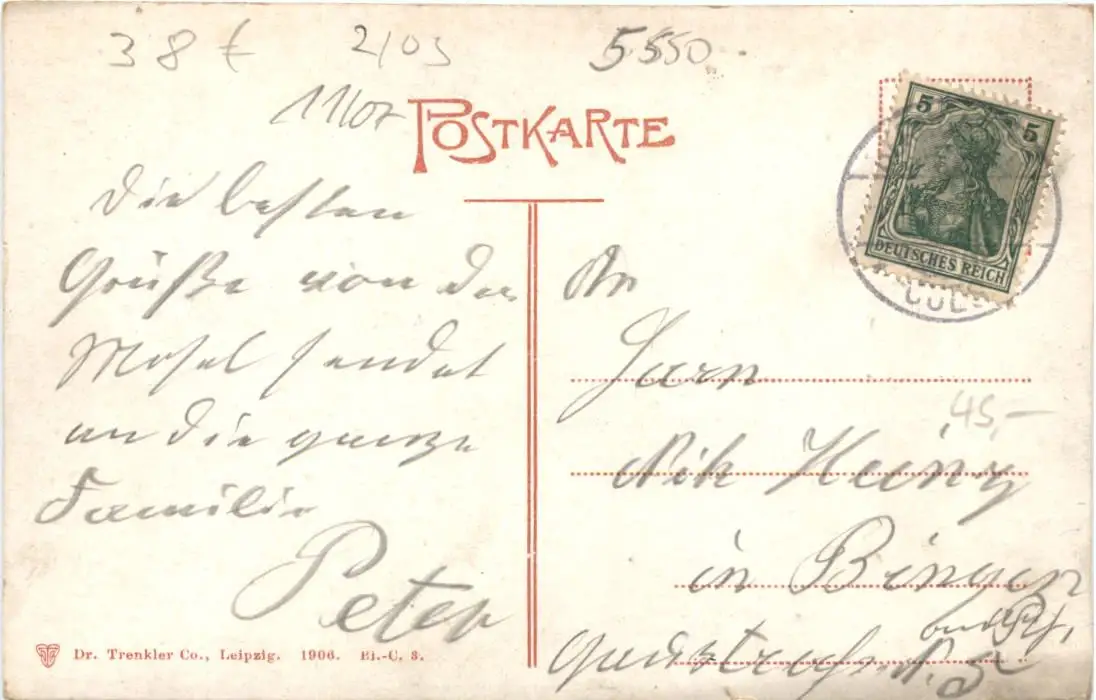 38 €
2/03
5550.-
POSTKARTE
5 5
DEUTSCHES REICH
Die besten
Grüße von der
Mosel sendet
an die ganze
Familie
Peter
An
Herrn
45,-
Nik Heinz
in Bingen
Dr. Trenkler Co., Leipzig. 1906.